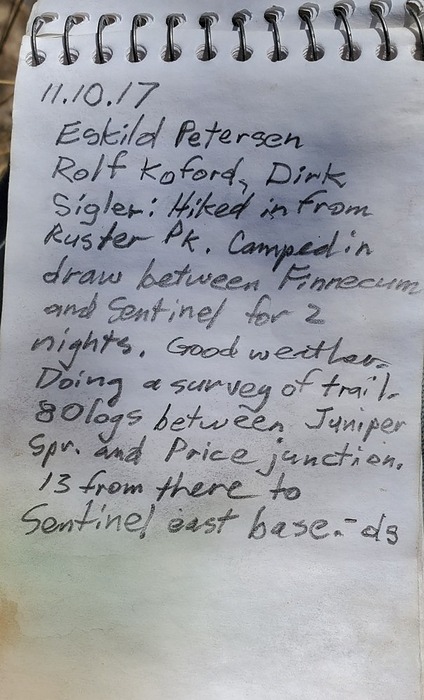 11.10.17
Eskild Petersen
Rolf Koford, Dirk
Sigler: Hiked in from
Ruster Pk. Camped in
draw between Finnecum
and Sentinel for 2
nights. Good weather.
Doing a survey of trail.
80 logs between Juniper
Spr. and Price junction.
13 from there to
Sentinel east base. - ds